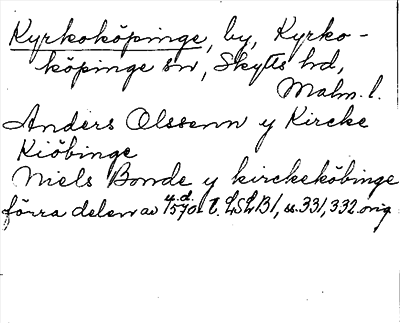 Kyrkoköpinge, by, Kyrko-
köpinge sn, Skytts hd,
Malm. l.
Anders Olssenn y Kircke
Kiöbinge
Niels Bonde y kirckeköbinge
förra delen av 1570-t. LSLB1, ss. 331, 332 orig